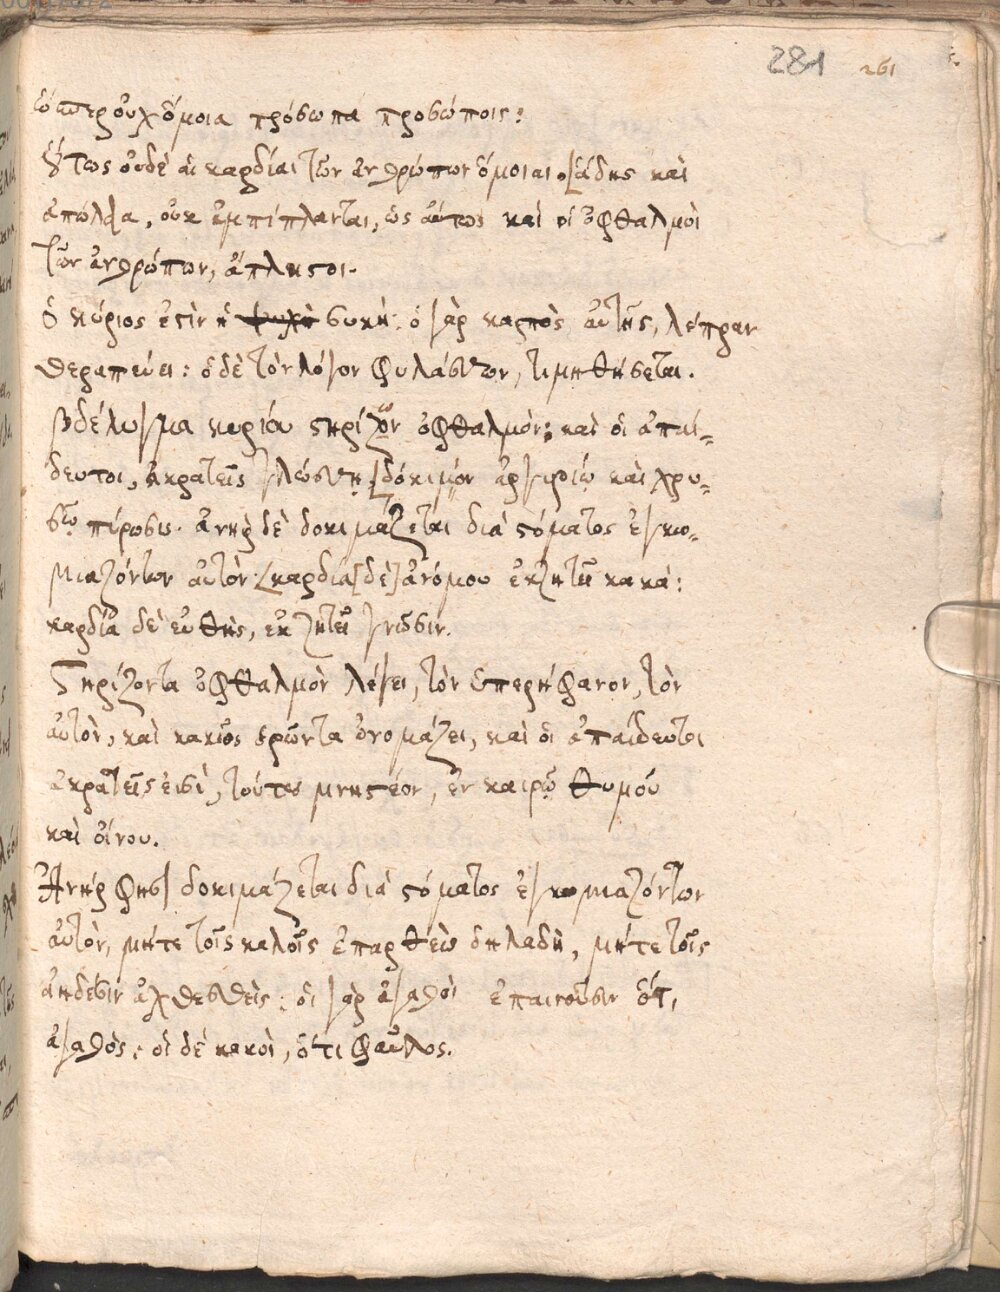 281 261
ὥσπερ οὐχ ὅμοια πρόσωπα προσώποις:
οὕτως οὐδὲ αἱ καρδίαι τῶν ἀνθρώπων ὅμοιαι. ἅδης καὶ
ἀπώλεια, οὐκ ἐμπίπλανται, ὡς αὕτως καὶ οἱ ὀφθαλμοὶ
τῶν ἀνθρώπων, ἄπληστοι.
ὁ κύριος ἐστὶν ἡ ψυχὴ συκῆ: ὁ γὰρ καρπὸς αὐτῆς, λέπραν
θεραπεύει: ὁ δὲ τὸν λόγον φυλάσσων, τιμηθήσεται.
βδέλυγμα κυρίου στηρίζων ὀφθαλμόν: καὶ οἱ ἀπαί-
δευτοι, ἀκρατεῖς γλώσσῃ. [δόκιμον ἀργυρίῳ καὶ χρυ-
σῷ πύρωσις. ἀνὴρ δὲ δοκιμάζεται διὰ στόματος ἐγκω-
μιαζόντων αὐτόν: [καρδία [δὲ] ἀνόμου ἐκζητεῖ κακά:
καρδία δὲ εὐθὴς, ἐκζητεῖ γνῶσιν.
Στηρίζοντα ὀφθαλμὸν λέγει, τὸν ὑπερήφανον, τὸν
αὐτὸν, καὶ κακῶς ὁρῶντα ὀνομάζει, καὶ οἱ ἀπαίδευτοι
ἀκρατεῖς εἰσὶ, τούτοις μνηστέον, ἐν καιρῷ θυμοῦ
καὶ οἴνου.
Ἀνὴρ φησὶ δοκιμάζεται διὰ στόματος ἐγκωμιαζόντων
αὐτὸν, μήτε τοῖς καλοῖς ἐπαρθεὶς δηλαδὴ, μήτε τοῖς
ἀηδέσιν ἀχθεσθεὶς: οἱ γὰρ ἀγαθοὶ ἐπαινοῦσιν ὅτι
ἀγαθὸς, οἱ δὲ κακοὶ, ὅτι φαῦλος.